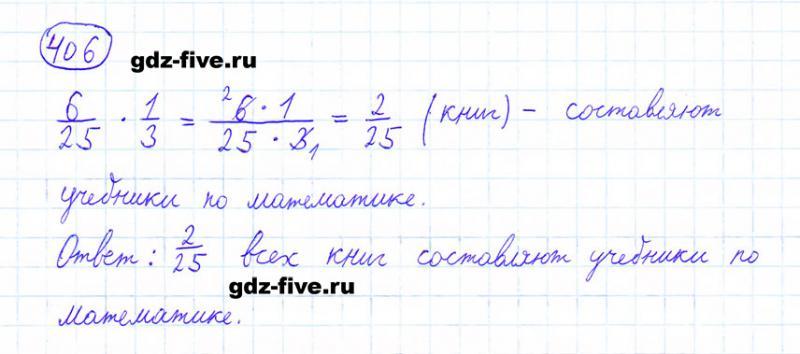 406
gdz-five.ru
6/25 · 1/3 = ²6 · 1 / 25 · 3₁ = 2/25 (книг) - составляют
учебники по математике.
Ответ: 2/25 всех книг составляют учебники по
gdz-five.ru
математике.